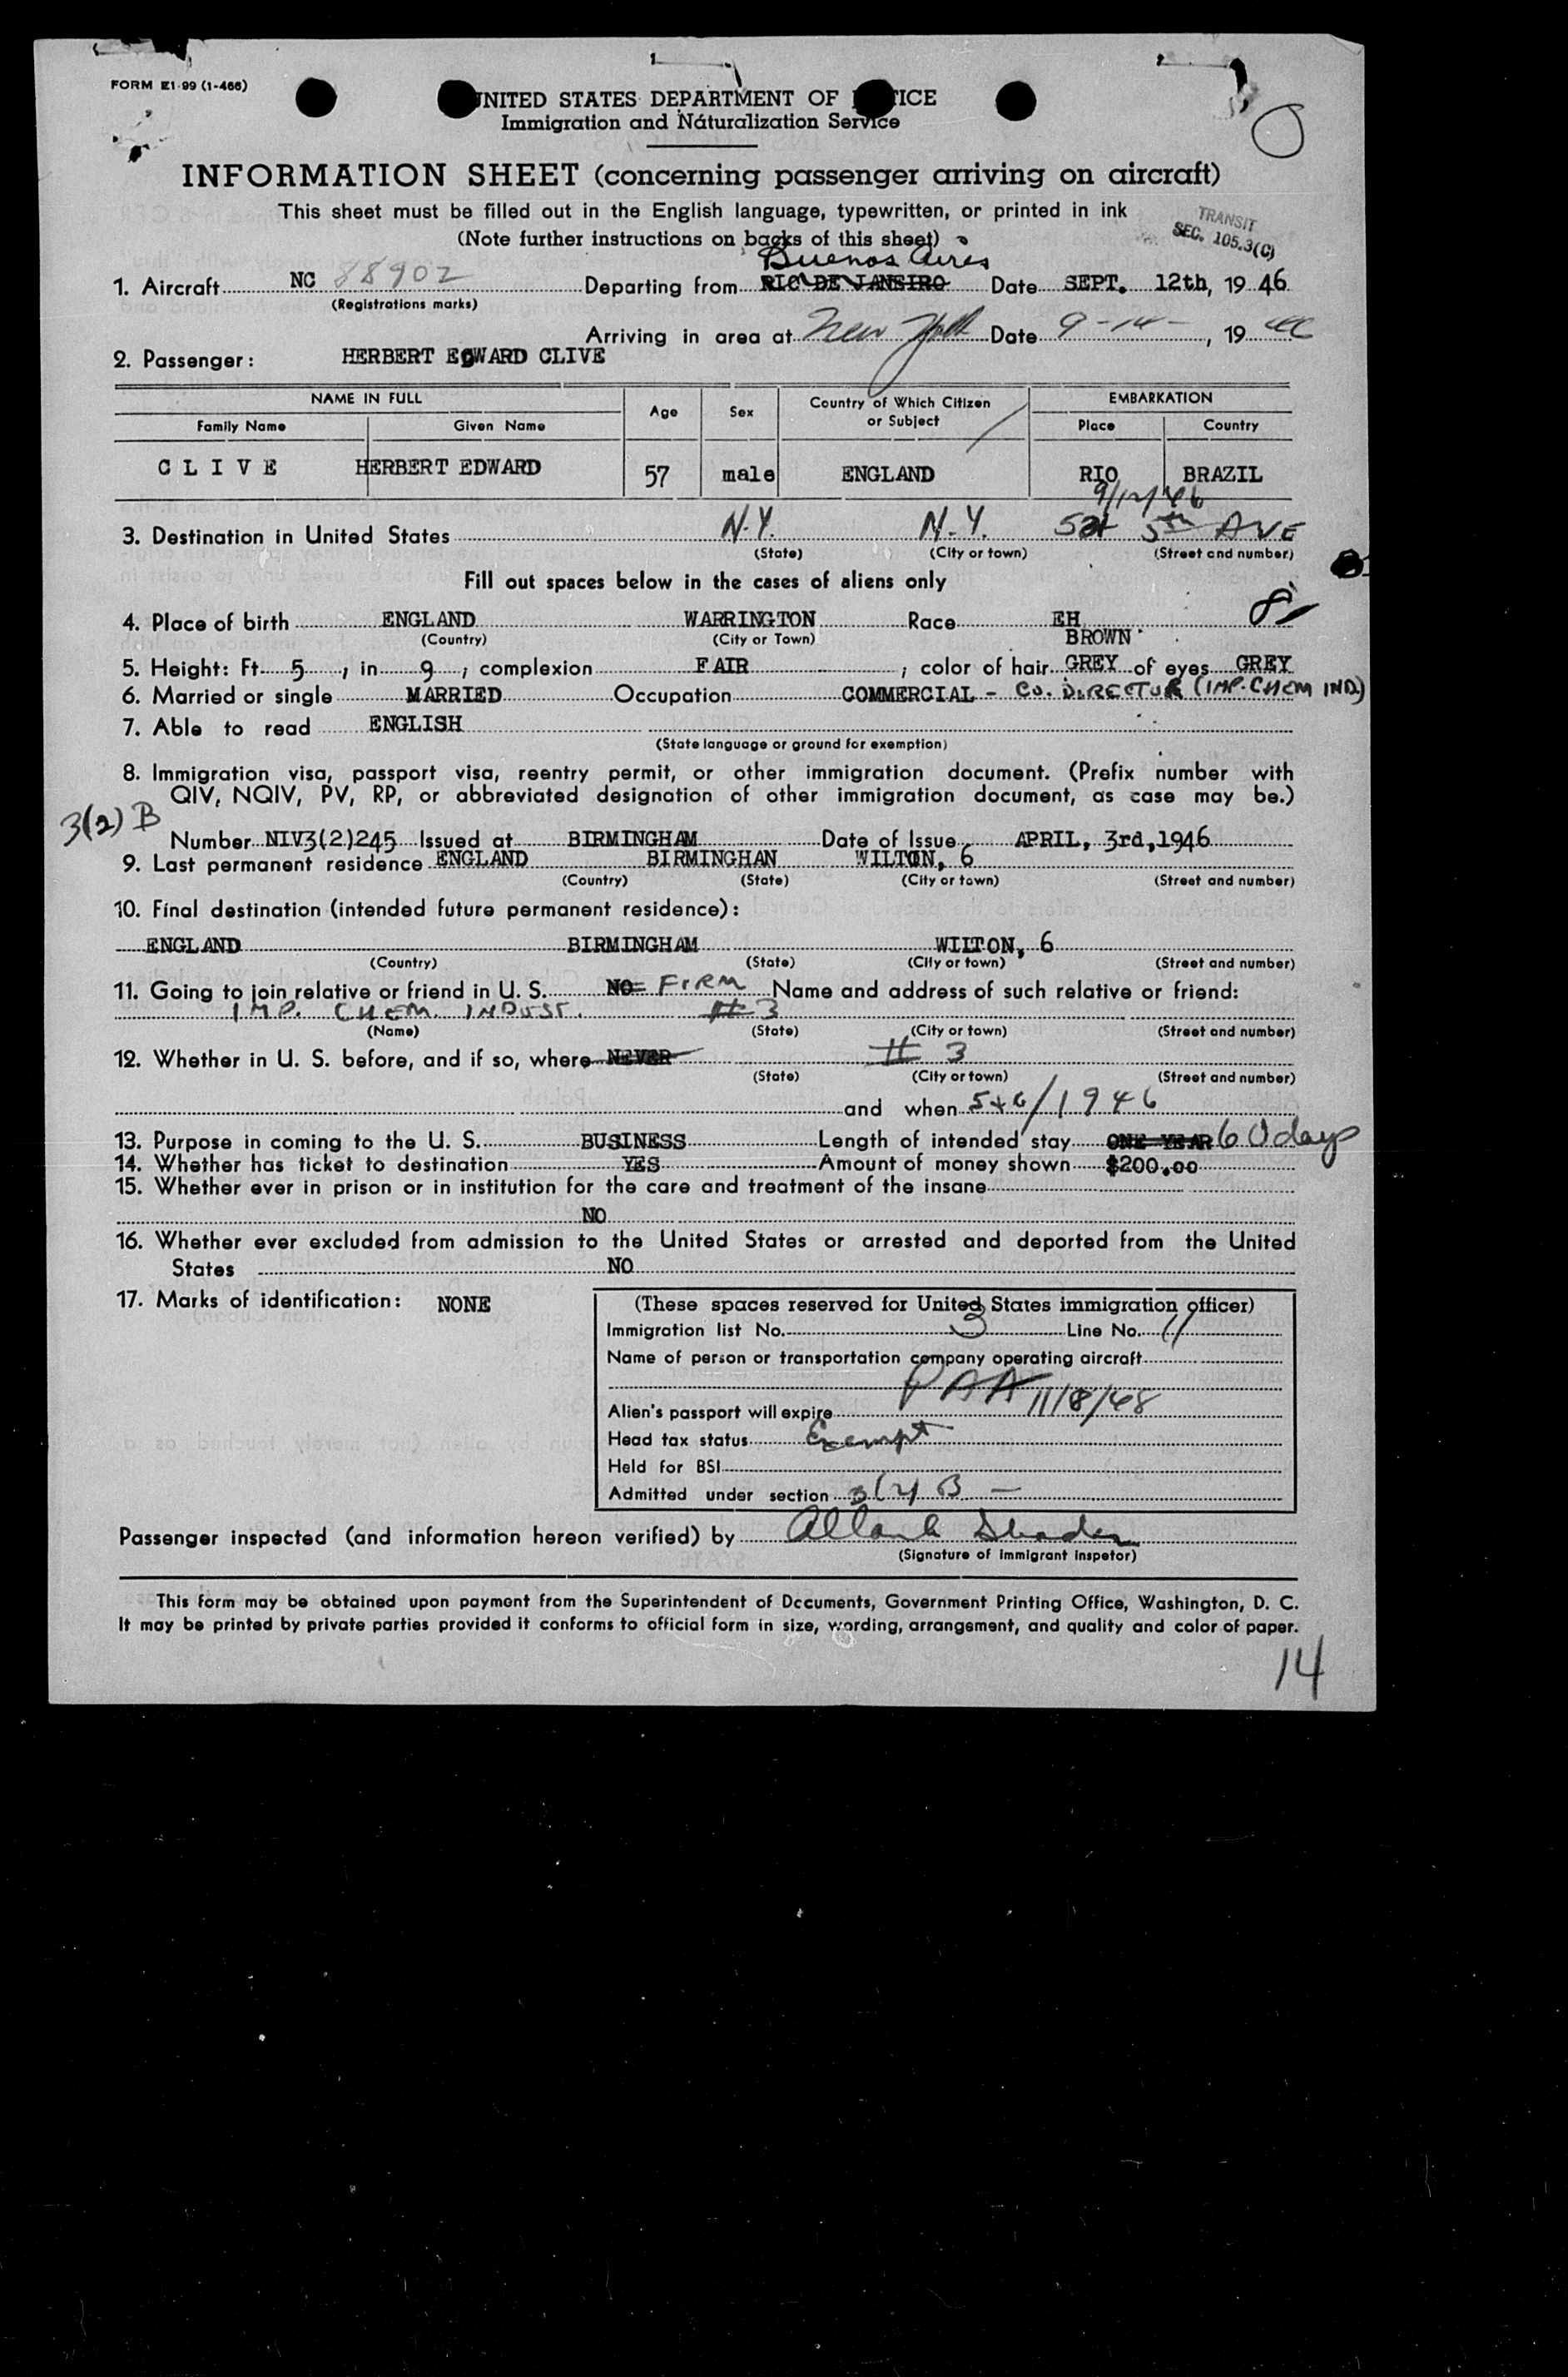 FORM E1-99 (1-466)
UNITED STATES DEPARTMENT OF TICE
Immigration and Naturalization Service
INFORMATION SHEET (concerning passenger arriving on aircraft)
This sheet must be filled out in the English language, typewritten, or printed in ink
(Note further instructions on backs of this sheet)
TRANSIT
SEC. 105.3(C)
Buenos Aires
1. Aircraft NC 88902 Departing from RIO DE JANEIRO Date SEPT. 12th, 19 46
(Registrations marks)
Arriving in area at New York Date 9-14-, 19 46
2. Passenger: HERBERT EDWARD CLIVE
NAME IN FULL Age Sex Country of Which Citizen or Subject EMBARKATION
Family Name Given Name Place Country
CLIVE HERBERT EDWARD 57 male ENGLAND RIO BRAZIL
9/12/46
3. Destination in United States N.Y. N.Y. 521 5th AVE
(State) (City or town) (Street and number)
Fill out spaces below in the cases of aliens only
4. Place of birth ENGLAND WARRINGTON Race EH
(Country) (City or Town) BROWN
5. Height: Ft. 5, in 9; complexion FAIR; color of hair GREY of eyes GREY
6. Married or single MARRIED Occupation COMMERCIAL - CO. DIRECTOR (IMP. CHEM IND.)
7. Able to read ENGLISH
(State language or ground for exemption)
8. Immigration visa, passport visa, reentry permit, or other immigration document. (Prefix number with
QIV, NQIV, PV, RP, or abbreviated designation of other immigration document, as case may be.)
3(2) B
Number NIV3(2)245 Issued at BIRMINGHAM Date of Issue APRIL, 3rd, 1946
9. Last permanent residence ENGLAND BIRMINGHAN WILTON, 6
(Country) (State) (City or town) (Street and number)
10. Final destination (intended future permanent residence):
ENGLAND BIRMINGHAM WILTON, 6
(Country) (State) (City or town) (Street and number)
11. Going to join relative or friend in U. S. NO FIRM Name and address of such relative or friend:
IMP. CHEM. INDUST. # 3
(Name) (State) (City or town) (Street and number)
12. Whether in U. S. before, and if so, where NEVER # 3
(State) (City or town) (Street and number)
and when 5+6/1946
13. Purpose in coming to the U. S. BUSINESS Length of intended stay ONE YEAR 60 days
14. Whether has ticket to destination YES Amount of money shown $200.00
15. Whether ever in prison or in institution for the care and treatment of the insane
NO
16. Whether ever excluded from admission to the United States or arrested and deported from the United
States NO
17. Marks of identification: NONE
(These spaces reserved for United States immigration officer)
Immigration list No. 3 Line No. 11
Name of person or transportation company operating aircraft
PAA
Alien's passport will expire 11/8/48
Head tax status Exempt
Held for BSI
Admitted under section 3(2) B —
Passenger inspected (and information hereon verified) by
(Signature of Immigrant Inspetor)
This form may be obtained upon payment from the Superintendent of Documents, Government Printing Office, Washington, D. C.
It may be printed by private parties provided it conforms to official form in size, wording, arrangement, and quality and color of paper.
14